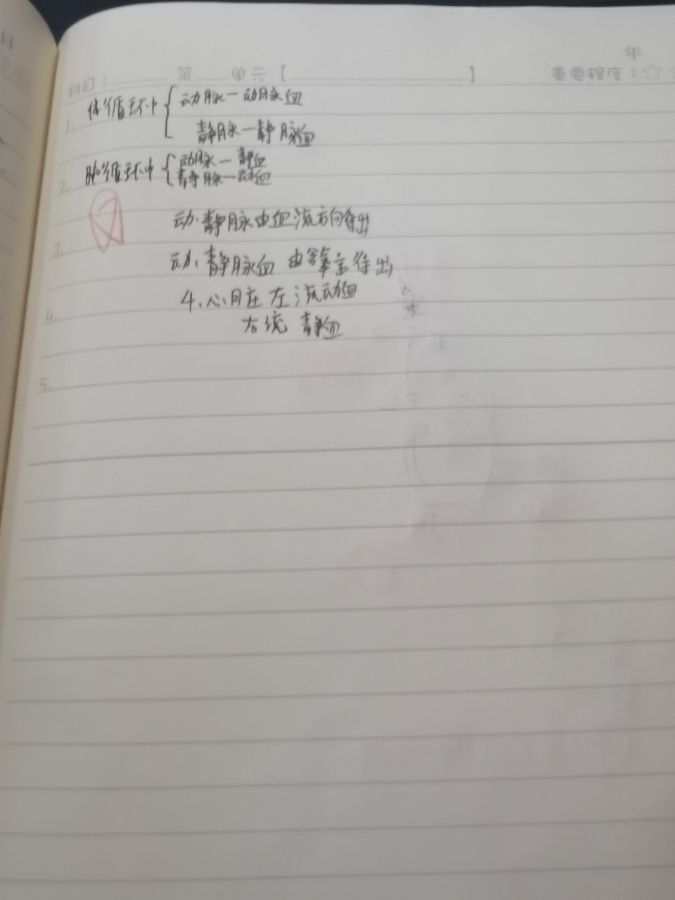 年
科目： 第 单元【 】 重要程度：☆
1. 体循环中 { 动脉—动脉血
静脉—静脉血
2. 肺循环中 { 动脉—静血
静脉—动血
动.静脉由血流方向得出
3.
动、静脉血 由含氧言得出
4. 4.心脏左流动血
右统 静血
5.